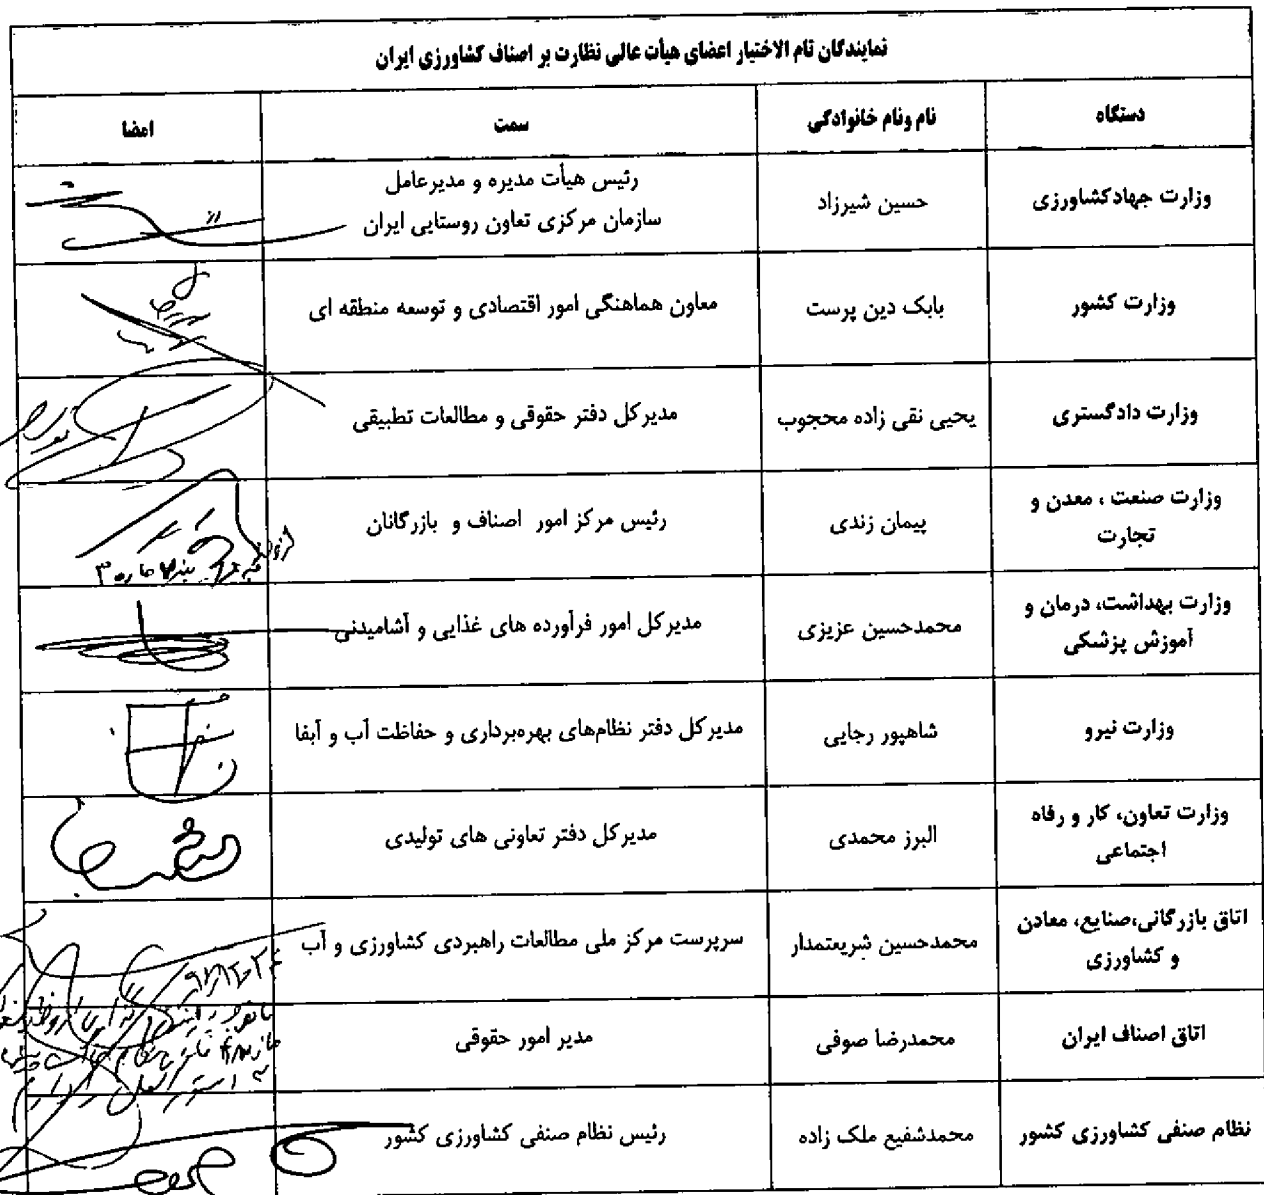 نمایندگان تام الاختیار اعضای هیأت عالی نظارت بر اصناف کشاورزی ایران
دستگاه نام ونام خانوادگی سمت امضا
وزارت جهادکشاورزی حسین شیرزاد رئیس هیأت مدیره و مدیرعامل
سازمان مرکزی تعاون روستایی ایران
وزارت کشور بابک دین پرست معاون هماهنگی امور اقتصادی و توسعه منطقه ای
وزارت دادگستری یحیی نقی زاده محجوب مدیرکل دفتر حقوقی و مطالعات تطبیقی
وزارت صنعت ، معدن و
تجارت
پیمان زندی رئیس مرکز امور اصناف و بازرگانان
وزارت بهداشت، درمان و
آموزش پزشکی
محمدحسین عزیزی مدیرکل امور فرآورده های غذایی و آشامیدنی
وزارت نیرو شاهپور رجایی مدیرکل دفتر نظام‌های بهره‌برداری و حفاظت آب و آبفا
وزارت تعاون، کار و رفاه
اجتماعی
البرز محمدی مدیرکل دفتر تعاونی های تولیدی
اتاق بازرگانی،صنایع، معادن
و کشاورزی
محمدحسین شریعتمدار سرپرست مرکز ملی مطالعات راهبردی کشاورزی و آب
اتاق اصناف ایران محمدرضا صوفی مدیر امور حقوقی
نظام صنفی کشاورزی کشور محمدشفیع ملک زاده رئیس نظام صنفی کشاورزی کشور